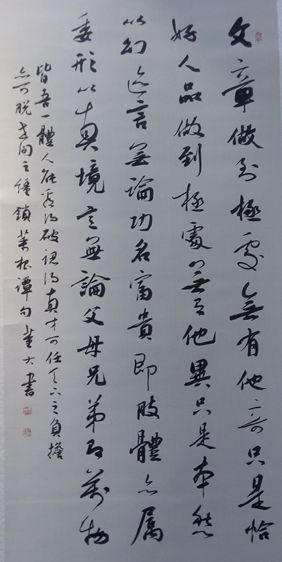 文章做到極處無有他奇只是恰
好人品做到極處無有他異只是本然
以幻迹言無論功名富貴即肢體亦屬
委形以真境言無論父母兄弟即萬物
皆吾一體人能看得破認得真才可任天下之負擔
亦可脫世間之韁鎖菜根譚句書